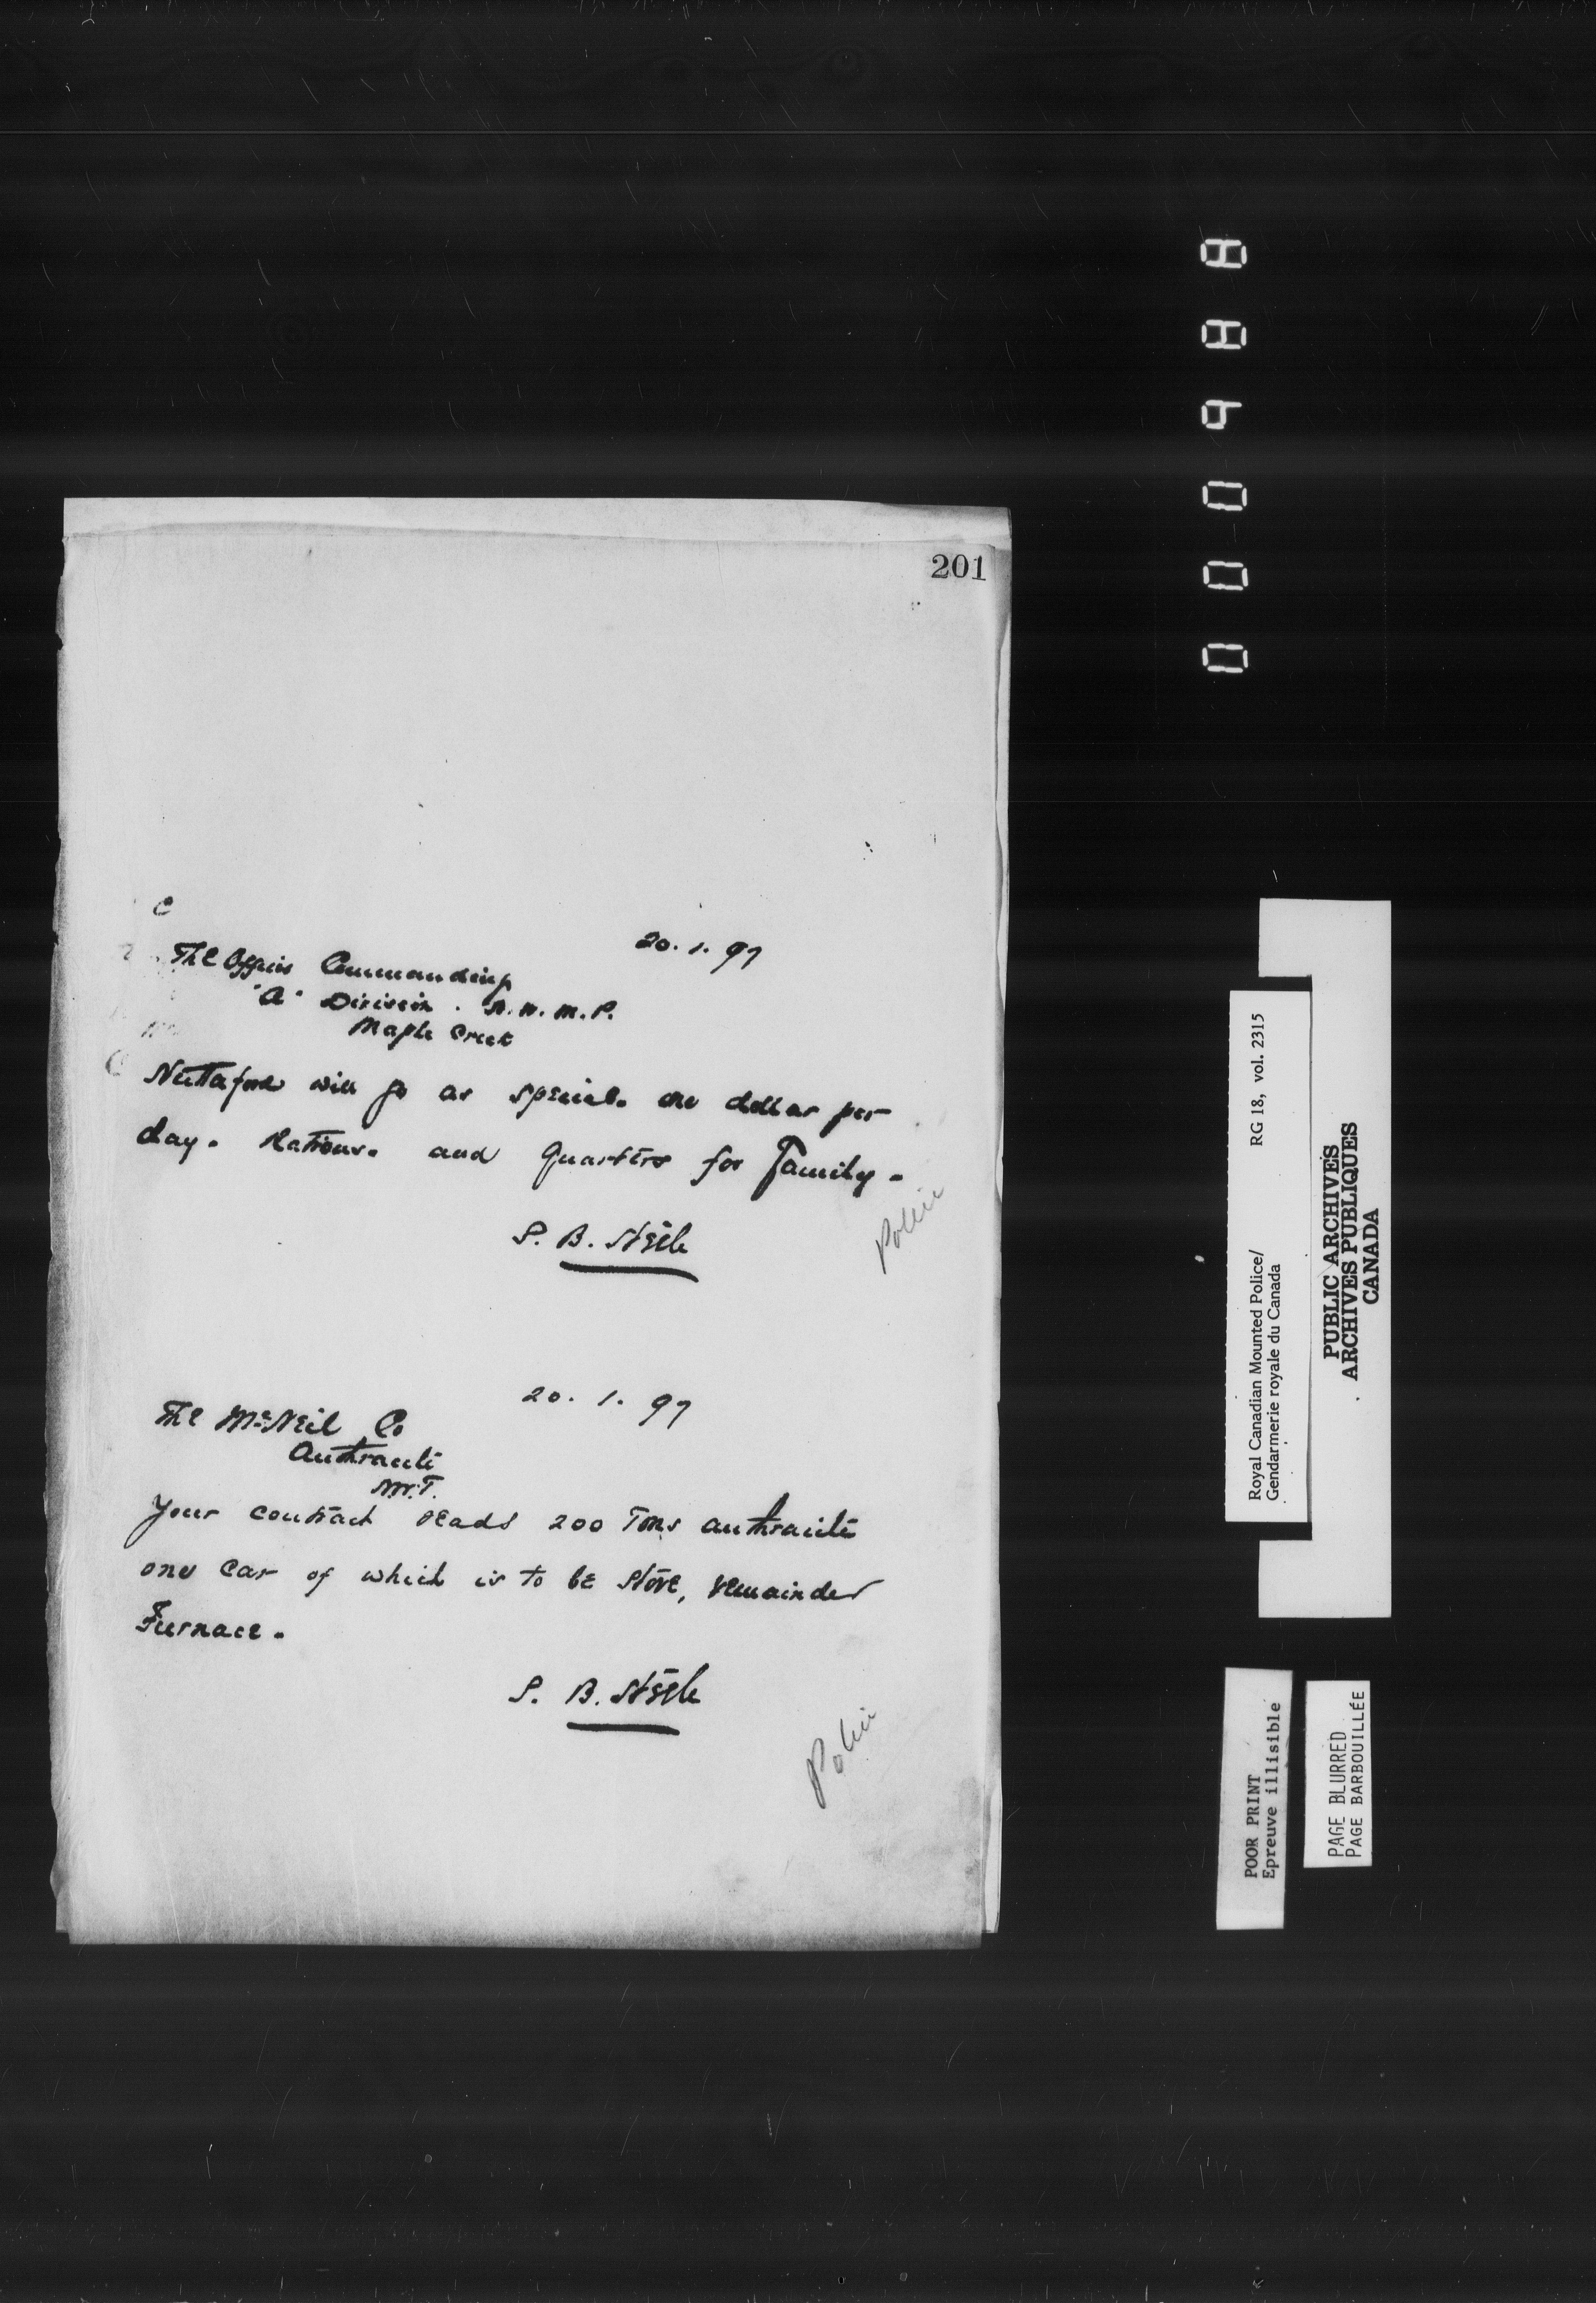 201
C
20. 1. 97
The Officer Commanding
"A" Division. N. W. M. P.
Maple Creek
will go as special. one dollar per
day. Rations. and Quarters for Family.
S. B. Steele
Police
20. 1. 97
The McNeil Co
Anthracite
N.W.T.
Your contract reads 200 Tons anthracite
one Car of which is to be stove, remainder
Furnace.
S. B. Steele
Police
000988
Royal Canadian Mounted Police/ RG 18, vol. 2315
Gendarmerie royale du Canada
PUBLIC ARCHIVES
ARCHIVES PUBLIQUES
CANADA
POOR PRINT
Epreuve illisible
PAGE BLURRED
PAGE BARBOUILLÉE